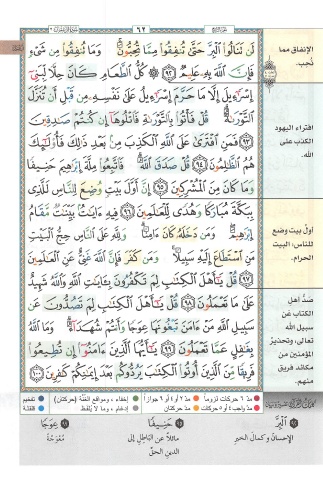 ٦٢
لَن تَنَالُوا۟ ٱلْبِرَّ حَتَّىٰ تُنفِقُوا۟ مِمَّا تُحِبُّونَ ۚ وَمَا تُنفِقُوا۟ مِن شَىْءٍ
فَإِنَّ ٱللَّهَ بِهِۦ عَلِيمٌ ٩٢ ۞ كُلُّ ٱلطَّعَامِ كَانَ حِلًّا لِّبَنِىٓ
إِسْرَٰٓءِيلَ إِلَّا مَا حَرَّمَ إِسْرَٰٓءِيلُ عَلَىٰ نَفْسِهِۦ مِن قَبْلِ أَن تُنَزَّلَ
ٱلتَّوْرَىٰةُ ۗ قُلْ فَأْتُوا۟ بِٱلتَّوْرَىٰةِ فَٱتْلُوهَآ إِن كُنتُمْ صَٰدِقِينَ
٩٣ فَمَنِ ٱفْتَرَىٰ عَلَى ٱللَّهِ ٱلْكَذِبَ مِنۢ بَعْدِ ذَٰلِكَ فَأُو۟لَٰٓئِكَ
هُمُ ٱلظَّٰلِمُونَ ٩٤ قُلْ صَدَقَ ٱللَّهُ ۗ فَٱتَّبِعُوا۟ مِلَّةَ إِبْرَٰهِيمَ حَنِيفًا
وَمَا كَانَ مِنَ ٱلْمُشْرِكِينَ ٩٥ إِنَّ أَوَّلَ بَيْتٍ وُضِعَ لِلنَّاسِ لَلَّذِى
بِبَكَّةَ مُبَارَكًا وَهُدًى لِّلْعَٰلَمِينَ ٩٦ فِيهِ ءَايَٰتٌۢ بَيِّنَٰتٌ مَّقَامُ
إِبْرَٰهِيمَ ۖ وَمَن دَخَلَهُۥ كَانَ ءَامِنًا ۗ وَلِلَّهِ عَلَى ٱلنَّاسِ حِجُّ ٱلْبَيْتِ
مَنِ ٱسْتَطَاعَ إِلَيْهِ سَبِيلًا ۚ وَمَن كَفَرَ فَإِنَّ ٱللَّهَ غَنِىٌّ عَنِ ٱلْعَٰلَمِينَ
٩٧ قُلْ يَٰٓأَهْلَ ٱلْكِتَٰبِ لِمَ تَكْفُرُونَ بِـَٔايَٰتِ ٱللَّهِ وَٱللَّهُ شَهِيدٌ
عَلَىٰ مَا تَعْمَلُونَ ٩٨ قُلْ يَٰٓأَهْلَ ٱلْكِتَٰبِ لِمَ تَصُدُّونَ عَن
سَبِيلِ ٱللَّهِ مَنْ ءَامَنَ تَبْغُونَهَا عِوَجًا وَأَنتُمْ شُهَدَآءُ ۗ وَمَا ٱللَّهُ
بِغَٰفِلٍ عَمَّا تَعْمَلُونَ ٩٩ يَٰٓأَيُّهَا ٱلَّذِينَ ءَامَنُوٓا۟ إِن تُطِيعُوا۟
فَرِيقًا مِّنَ ٱلَّذِينَ أُوتُوا۟ ٱلْكِتَٰبَ يَرُدُّوكُم بَعْدَ إِيمَٰنِكُمْ كَٰفِرِينَ ١٠٠
الإنفاق مما
نُحِب.
افتراء اليهود
الكذب على
الله.
أول بيت وضع
للناس: البيت
الحرام.
صدُّ أهل
الكتاب عن
سبيل الله
تعالى، وتحذيرُ
المؤمنين من
مكائد فريق
منهم.
مدّ ٦ حركات لزوماً
مدّ ٢ أو ٤ أو ٦ جوازاً
إخفاء، ومواقع الغُنَّة (حركتان)
تفخيم
مدّ واجب ٤ أو ٥ حركات
مدّ حركتان
إدغام، وما لا يُلفَظ
قلقلة
ٱلْبِرَّ
الإحسان وكمال الخير
حَنِيفًا
مائلاً عن الباطل إلى
الدين الحق
عِوَجًا
مُعْوَجَّة